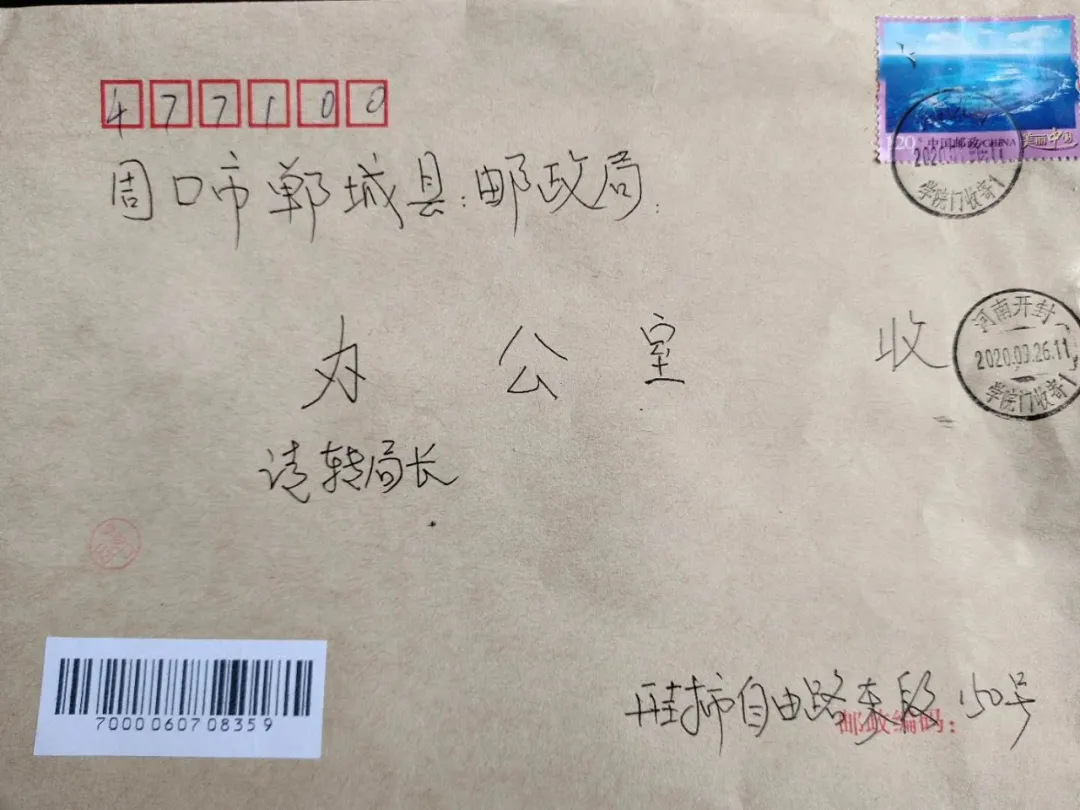 477100
120 中国邮政 CHINA 美丽中国
周口市郸城县:邮政局:
2020
学院门收寄1
河南开封
办公室 收
2020.09.26.11
学院门收寄1
请转局长
7000060708359
开封市自由路东段150号
邮政编码: